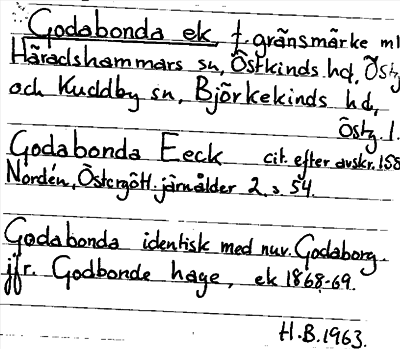 Godabonda ek f. gränsmärke ml
Häradshammars sn, Östkinds hd, Östg
och Kuddby sn, Björkekinds hd,
Östg l.
Godabonda Eeck cit. efter avskr. 158
Nordén, Östergötl. järnålder 2, s 54.
Godabonda identisk med nuv. Godaborg.
jfr. Godbonde hage, ek 1868-69.
H.B. 1963.